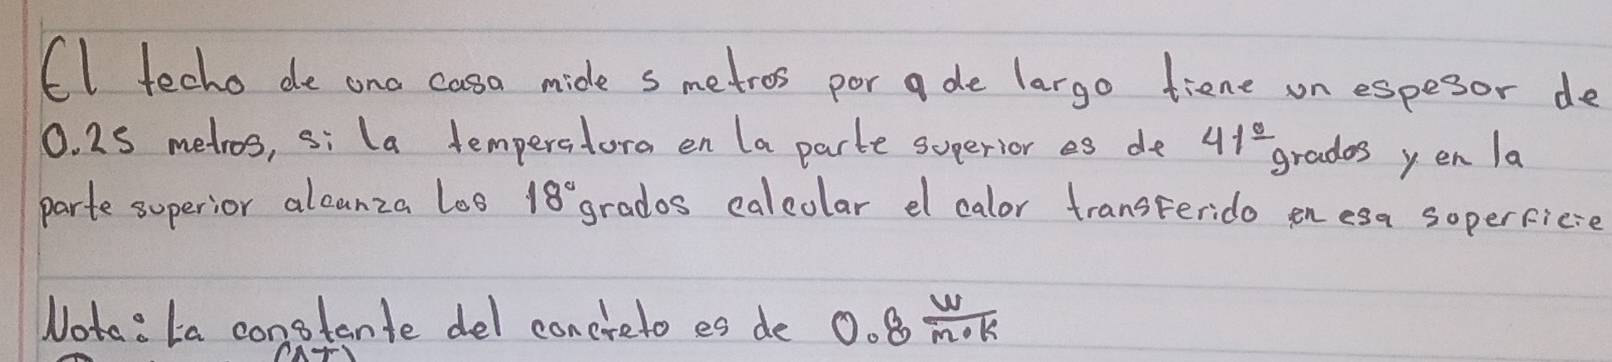 El techo de una casa mide 5 metros por 9 de largo tiene un espesor de
0.25 metros, si la temperatura en la parte superior es de 41º grados y en la
parte superior alcanza los 18° grados calcular el calor transferido en esa superficie
Nota: La constante del concreto es de 0.8 W/m·K
(ΔT)